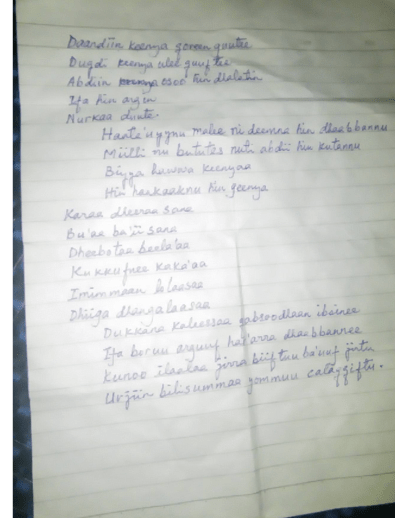 Daandiin keenya goreen guutee
Dugdi keenya ulee guuftee
Abdiin keenya osoo hin dhalatin
Ifa hin argin
Nurkaa duute.
Haate'uyyuu malee ni deemna hin dhaabbannu
Miilli nu bututes nuti abdii hin kutannu
Biyya hawwa keenyaa
Hin haakaaknu hin geenya
Karaa dheeraa sana
Bu'aa ba'ii sana
Dheebotaa beela'aa
Kukkufnee kaka'aa
Imimmaan lolaasaa
Dhiiga dhangalaasaa
Dukkana kaleessaa qabsoodhaan ibsinee
Ifa boruu arguuf har'arra dhaabbannee
Kunoo ilaalaa jirra biiftuu ba'uuf jirtu
Urjiin bilisummaa yommuu calaqqiftu.